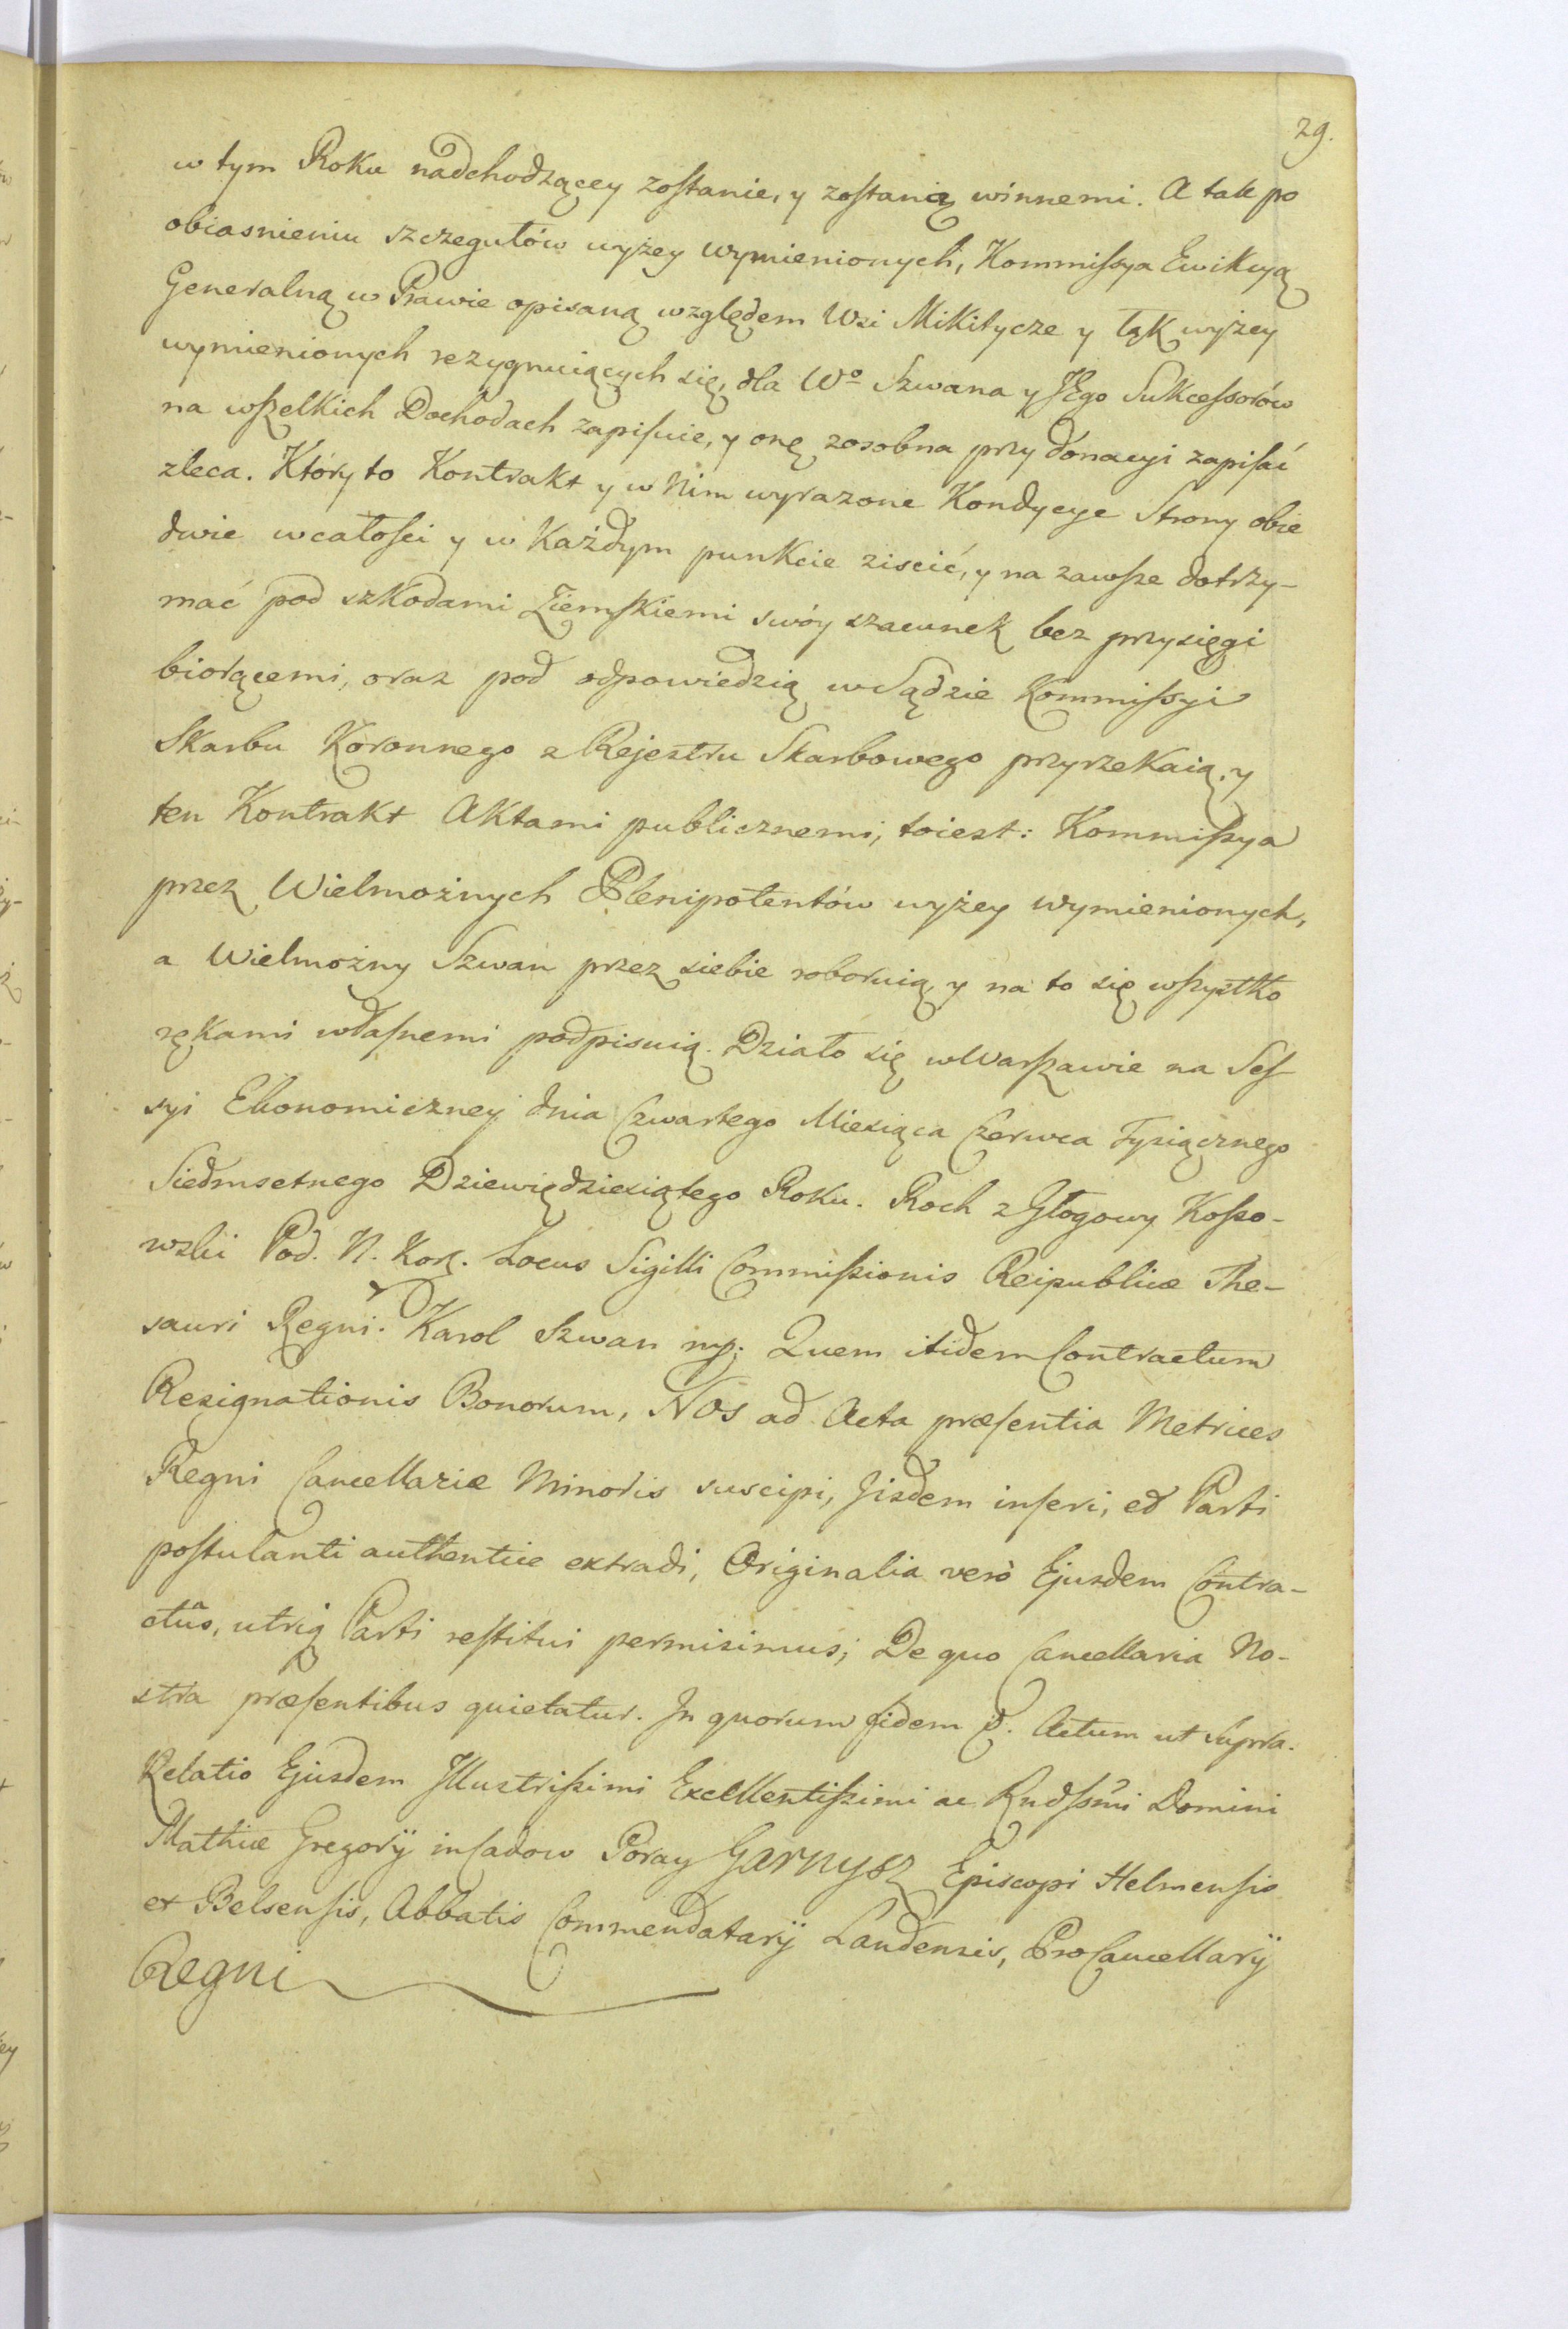 29.
w tym Roku nadchodzącey zostanie, y zostanią winnemi. A tak po
obiasnieniu szczegułów wyżey wymienionych, Kommissya Ewikcyą
Generalną w Prawie opisaną względem Wsi Mikitycze y Łąk wyżey
wymienionych rezygnuiących się, dla Wº Szwana y JEgo Sukcessorów
na wszelkich Dochodach zapisuie, y onę zosobna przy donacyi zapisać
zleca. Który to Kontrakt y w Nim wyrazone Kondycye Strony obie
dwie w całości y w Każdym punkcie ziscić, y na zawsze dotrzy-
mać pod szkodami Ziemskiemi swóy szacunek bez przysięgi
biorącemi, oraz pod odpowiedzią w Sądzie Kommissyi
Skarbu Koronnego z Rejestru Skarbowego przyrzekaią, y
ten Kontrakt Aktami publicznemi, toiest: Kommissya
przez Wielmożnych Plenipotentów wyżey wymienionych,
a Wielmożny Szwan przez siebie roboruią, y na to się wszystko
rękami własnemi podpisuią. Działo się w Warszawie na Ses-
syi Ekonomiczney dnia Czwartego Miesiąca Czerwca Tysiącznego
Siedmsetnego Dziewiędziesiątego Roku. Roch z Głogowy Kosso-
wski Pod. N. Kor. Locus Sigilli Commissionis Reipublicæ The-
sauri Regni. Karol Szwan mp; Quem itidem Contractum
Resignationis Bonorum, Nos ad Acta præsentia Metrices
Regni Cancellariæ Minoris suscipi, Jisdem inseri, ed Parti
postulanti authentice extradi, Originalia verò Ejusdem Contra-
ctûs, utriq Parti restitui permisimus; De quo Cancellaria No-
stra præsentibus quietatur. In quorum fidem &. Actum ut supra.
Relatio Ejusdem Illustrissimi Excellentissimi ac Rndssmi Domini
Mathiæ Gregorij in Cadow Poray Garnysz Episcopi Helmensis
et Belsensis, Abbatis Commendatarij Landensis, ProCancellarij
Regni